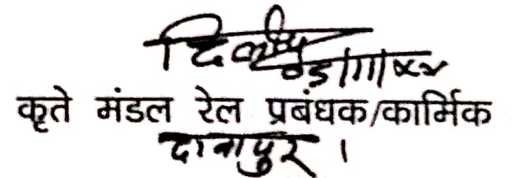 कृते मंडल रेल प्रबंधक/कार्मिक
दानापुर ।